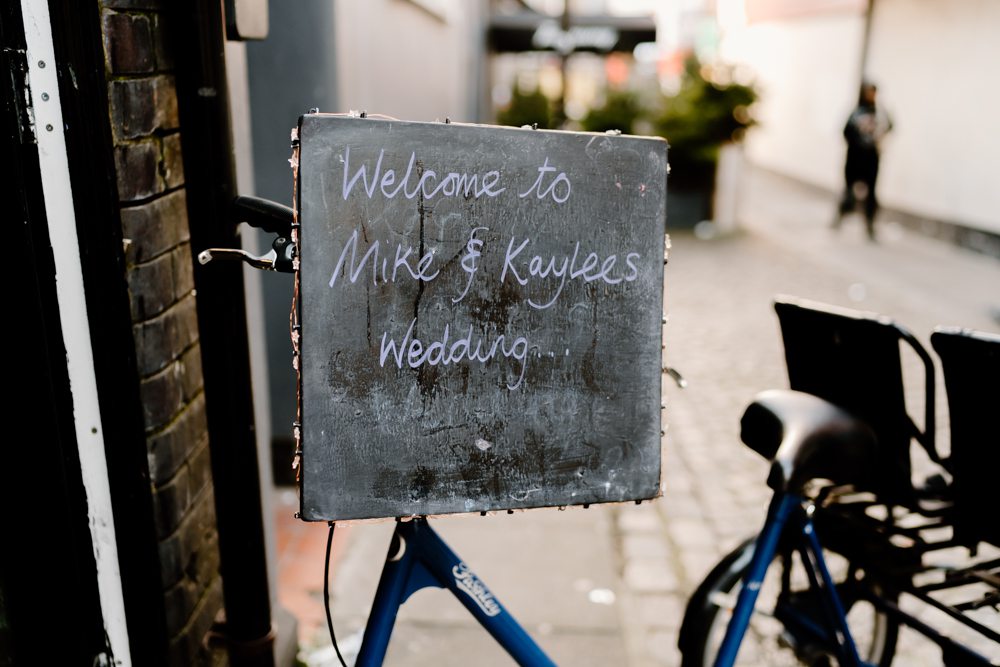 Welcome to
Mike & Kaylees
Wedding...